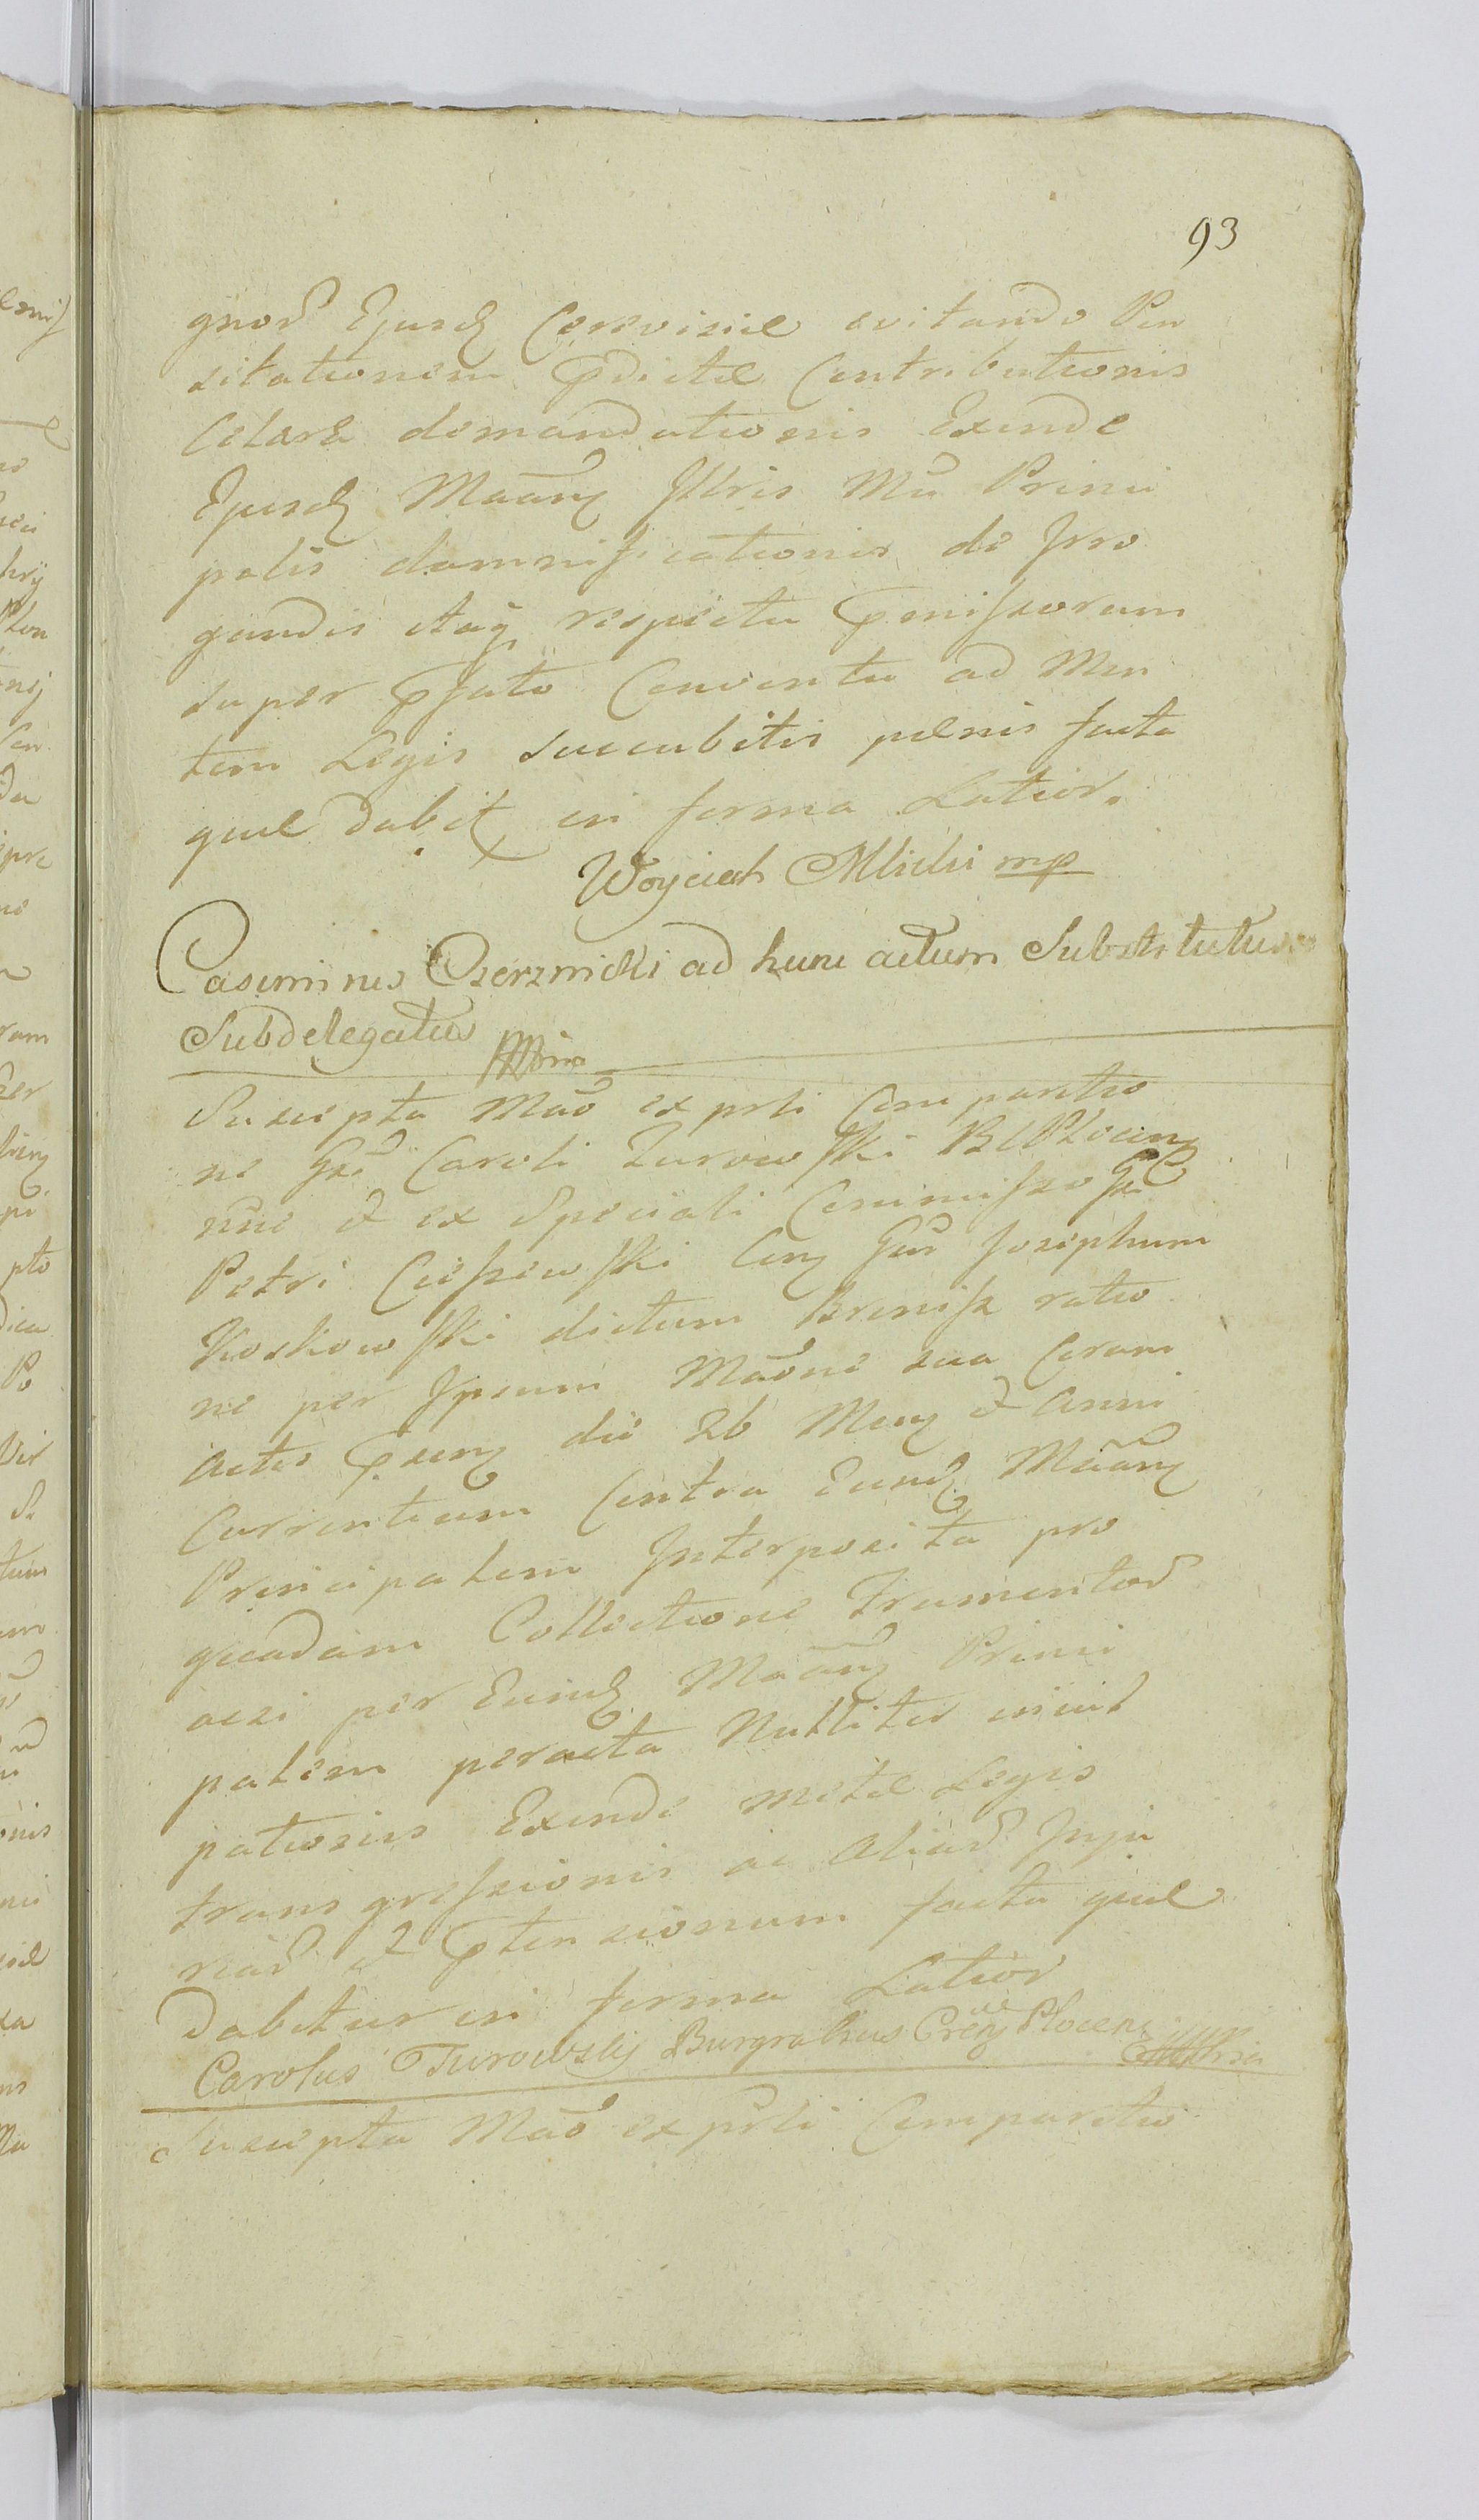 93
gnor Ejusd Cerevisiæ evitando Pen
sitationem pdictæ Contributionis
Celare demandationis Exinde
Ejusd Maãng Jllris Mũ Princi
palis damnificationis de Jrro
gandis itaq respectu pmissorum
super pfato Conventu ad Men
tem Legis succubitis pænis facta
quæ dabit in forma Latior.
Woyciech Mlicki mp
Casimirus Czerznicki ad hunc actum Substitutus
Subdelegatus
Suscepta Mão ex prli Comparitio
ne Gsi Caroli Turowski B C Plocen
nõie & ex Speciali Commisso Gsi
Petri Ciessewski Con Gũr Josephum
Koskowski dictum Brenisk ratio
ne per Jpsum Mãone sua Coram
Actis psen die 26 Men & Anni
Currentium Contra Eund Maãng
Principalem Jnterposita pro
quadam Collectione Frumentor
acsi per Eund Maãng Princi
palem peracta Nulliter incul
pationis Exinde metæ Legis
transgressionis ac Aliar Jnju
riar & ptensionum facta quæ
dabitur in forma Latior
Carolus Turowsky Burgrabius Crens Plocen
Suscepta Mão ex prli Comparitio